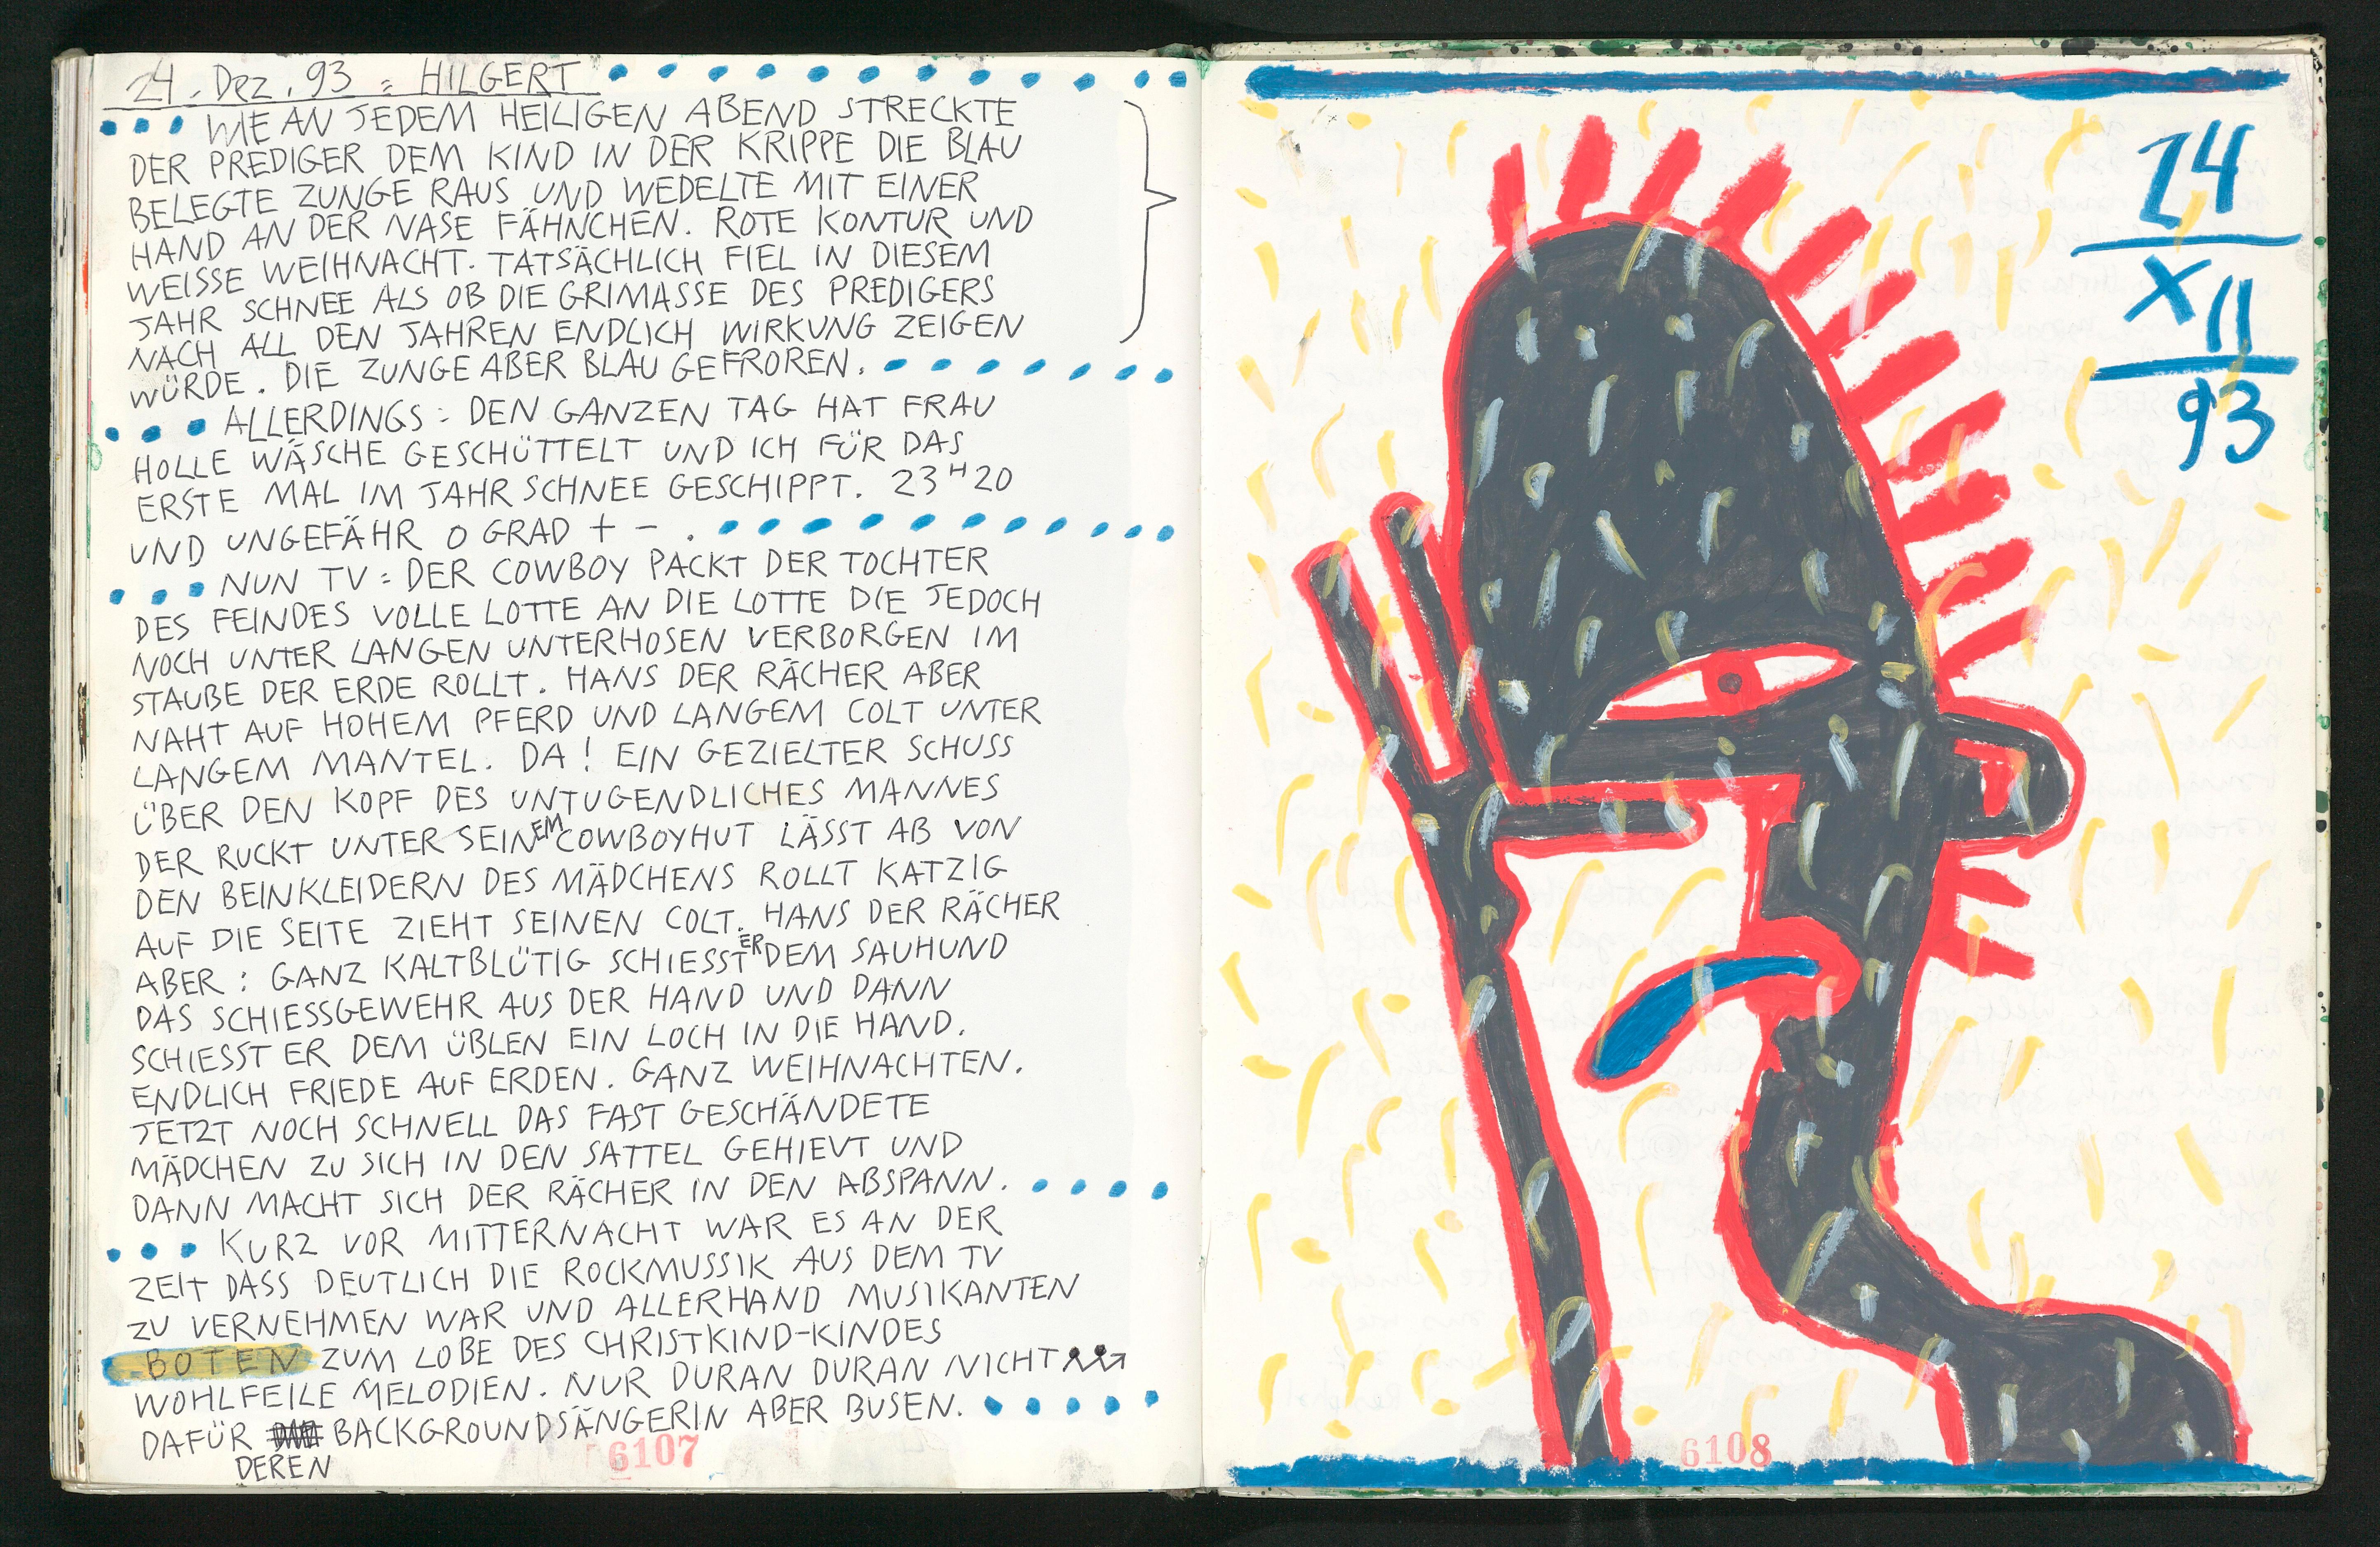 24. Dez. 93 = HILGERT
WIE AN JEDEM HEILIGEN ABEND STRECKTE
DER PREDIGER DEM KIND IN DER KRIPPE DIE BLAU
BELEGTE ZUNGE RAUS UND WEDELTE MIT EINER
HAND AN DER NASE FÄHNCHEN. ROTE KONTUR UND
WEISSE WEIHNACHT. TATSÄCHLICH FIEL IN DIESEM
JAHR SCHNEE ALS OB DIE GRIMASSE DES PREDIGERS
NACH ALL DEN JAHREN ENDLICH WIRKUNG ZEIGEN
WÜRDE. DIE ZUNGE ABER BLAU GEFROREN.
ALLERDINGS = DEN GANZEN TAG HAT FRAU
HOLLE WÄSCHE GESCHÜTTELT UND ICH FÜR DAS
ERSTE MAL IM JAHR SCHNEE GESCHIPPT. 23 H 20
UND UNGEFÄHR 0 GRAD + - .
NUN TV = DER COWBOY PACKT DER TOCHTER
DES FEINDES VOLLE LOTTE AN DIE LOTTE DIE JEDOCH
NOCH UNTER LANGEN UNTERHOSEN VERBORGEN IM
STAUBE DER ERDE ROLLT. HANS DER RÄCHER ABER
NAHT AUF HOHEM PFERD UND LANGEM COLT UNTER
LANGEM MANTEL. DA! EIN GEZIELTER SCHUSS
ÜBER DEN KOPF DES UNTUGENDLICHES MANNES
DER RUCKT UNTER SEINEM COWBOYHUT LÄSST AB VON
DEN BEINKLEIDERN DES MÄDCHENS ROLLT KATZIG
AUF DIE SEITE ZIEHT SEINEN COLT. HANS DER RÄCHER
ABER: GANZ KALTBLÜTIG SCHIESST ER DEM SAUHUND
DAS SCHIESSGEWEHR AUS DER HAND UND DANN
SCHIESST ER DEM ÜBLEN EIN LOCH IN DIE HAND.
ENDLICH FRIEDE AUF ERDEN. GANZ WEIHNACHTEN.
JETZT NOCH SCHNELL DAS FAST GESCHÄNDETE
MÄDCHEN ZU SICH IN DEN SATTEL GEHIEVT UND
DANN MACHT SICH DER RÄCHER IN DEN ABSPANN.
KURZ VOR MITTERNACHT WAR ES AN DER
ZEIT DASS DEUTLICH DIE ROCKMUSSIK AUS DEM TV
ZU VERNEHMEN WAR UND ALLERHAND MUSIKANTEN
BOTEN ZUM LOBE DES CHRISTKIND-KINDES
WOHLFEILE MELODIEN. NUR DURAN DURAN NICHT
DAFÜR DEREN BACKGROUNDSÄNGERIN ABER BUSEN.
6107
24
XII
93
6108